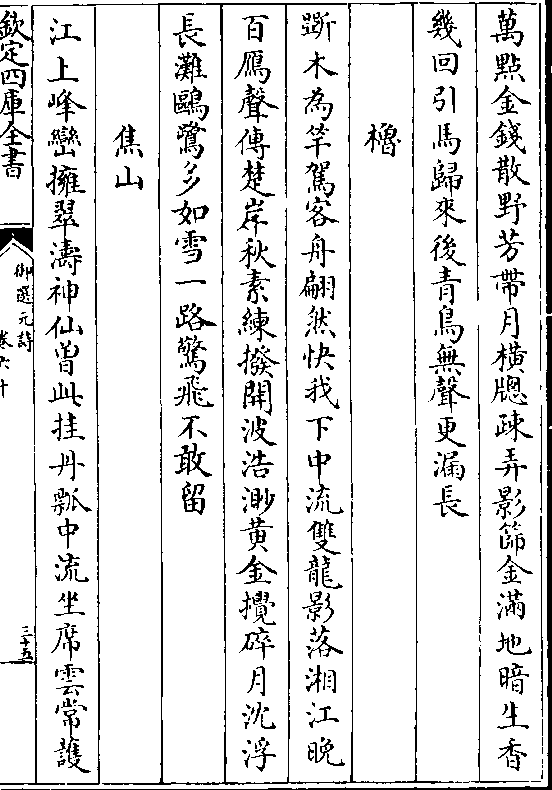 萬點金錢散野芳帶月橫牕疎弄影篩金滿地暗生香
幾回引馬歸來後青鳥無聲更漏長
櫓
斲木為竿駕客舟翩然快我下中流雙龍影落湘江晚
百鴈聲傳楚岸秋素練撥開波浩渺黄金攪碎月沈浮
長灘鷗鷺多如雪一路驚飛不敢留
焦山
江上峰巒擁翠濤神仙曾此挂丹瓢中流坐席雲常護
欽定四庫全書
御選元詩
卷六十
三十五